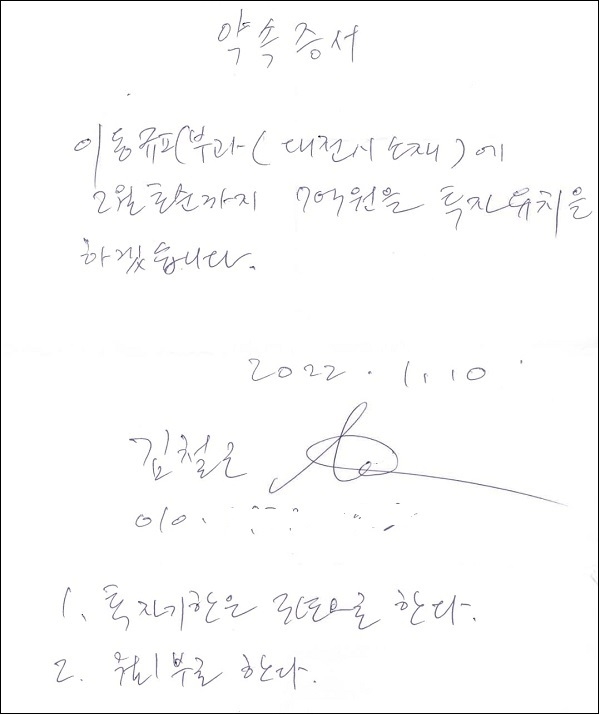 약속증서
이동규피부과(대전시 소재)에
2월초순까지 7억원을 투자유치을
하겠습니다.
2022. 1. 10
김철근
010.
1. 투자기한은 로 한다.
2. 월 부로 한다.